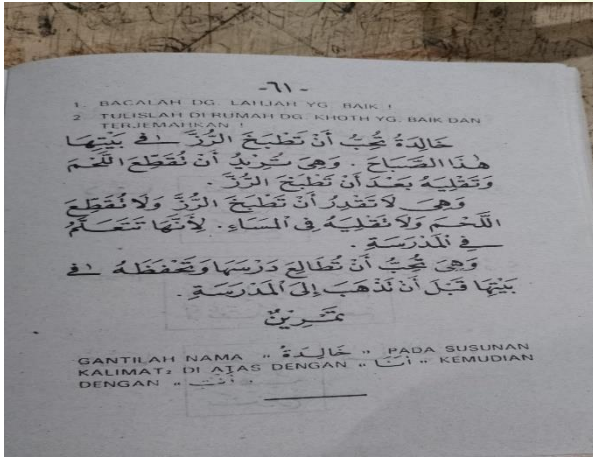 -٦١-
1. BACALAH DG. LAHJAH YG. BAIK !
2 TULISLAH DI RUMAH DG. KHOTH YG. BAIK DAN
TERJEMAHKAN !
خَالِدَةُ تُحِبُّ أَنْ تَطْبَخَ الرُّزَّ فِي بَيْتِهَا
هٰذَا الصَّبَاحَ . وَهِيَ تُرِيْدُ أَنْ تُقَطِّعَ اللَّحْمَ
وَتَقْلِيَهُ بَعْدَ أَنْ تَطْبَخَ الرُّزَّ .
وَهِيَ لَا تَقْدِرُ أَنْ تَطْبَخَ الرُّزَّ وَلَا تُقَطِّعَ
اللَّحْمَ وَلَا تَقْلِيَهُ فِي الْمَسَاءِ. لِأَنَّهَا تَتَعَلَّمُ
فِي الْمَدْرَسَةِ .
وَهِيَ تُحِبُّ أَنْ تُطَالِعَ دَرْسَهَا وَتَحْفَظَهُ فِي
بَيْتِهَا قَبْلَ أَنْ تَذْهَبَ إِلَى الْمَدْرَسَةِ .
تَمْرِيْنٌ
GANTILAH NAMA „ خَالِدَةُ „ PADA SUSUNAN
KALIMAT₂ DI ATAS DENGAN „ أَنَا „ KEMUDIAN
DENGAN „ أَنْتِ „